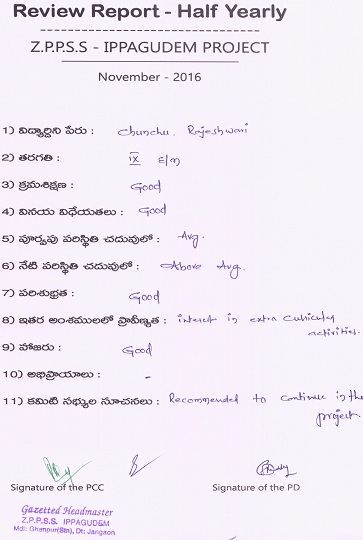 Review Report - Half Yearly
Z.P.P.S.S - IPPAGUDEM PROJECT
November - 2016
1) విద్యార్థిని పేరు : Chunchu. Rajeshwari
2) తరగతి : IX E/M
3) క్రమశిక్షణ : Good
4) వినయ విధేయతలు : Good
5) పూర్వపు పరిస్థితి చదువులో : Avg.
6) నేటి పరిస్థితి చదువులో : Above Avg.
7) పరిశుభ్రత : Good
8) ఇతర అంశములలో ప్రావీణ్యత : interest in extra Cubicular
activities.
9) హాజరు : Good
10) అభిప్రాయాలు : -
11) కమిటి సభ్యుల సూచనలు : Recommended to continue in the
project
Signature of the PCC Signature of the PD
Gazetted Headmaster
Z.P.P.S.S. IPPAGUDEM
Mdl: Ghanpur(Stn), Dt: Jangaon